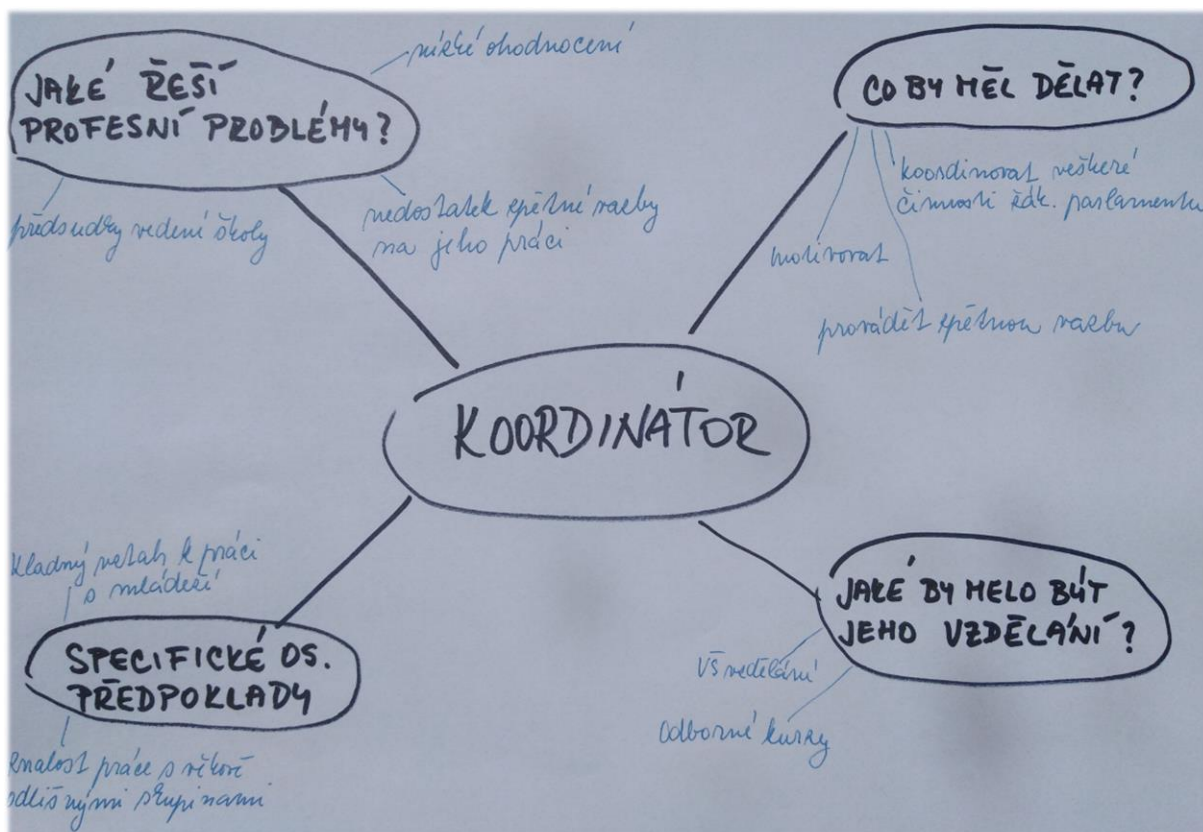 JAKÉ ŘEŠÍ
PROFESNÍ PROBLÉMY?
nízké ohodnocení
předsudky vedení školy
nedostatek zpětné vazby
na jeho práci
CO BY MĚL DĚLAT?
koordinovat veškeré
činnosti žák. parlamentu
motivovat
provádět zpětnou vazbu
KOORDINÁTOR
Kladný vztah k práci
s mládeží
SPECIFICKÉ OS.
PŘEDPOKLADY
znalost práce s věkově
odlišnými skupinami
JAKÉ BY MELO BÝT
JEHO VZDĚLÁNÍ?
VŠ vzdělání
Odborné kurzy